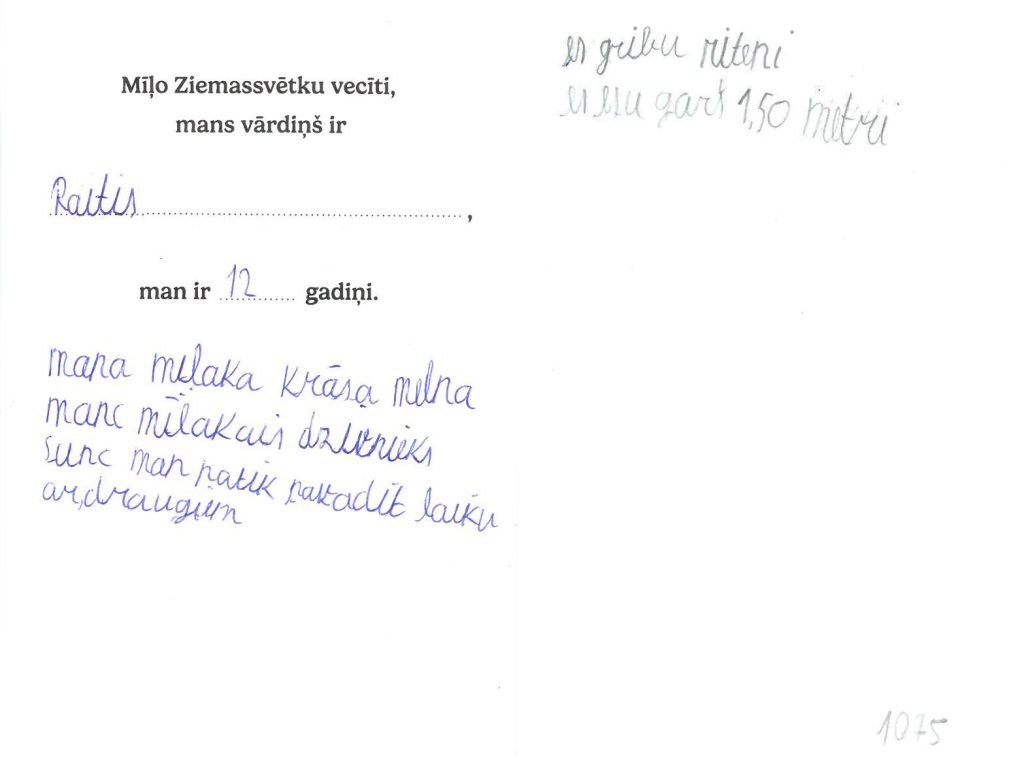 Mīļo Ziemassvētku vecīti,
mans vārdiņš ir
Raitis,
man ir 12 gadiņi.
mana miļaka krāsa melna
manc mīlakais dzivnieks
sunc man patik pavadīt laiku
ar draugiem
es gribu riteni
es esu garš 1,50 metri
1075